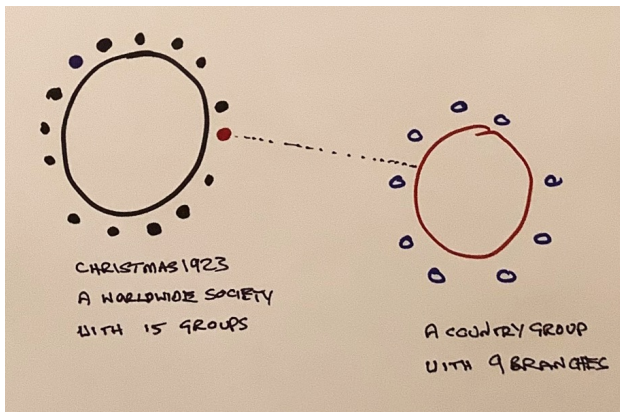 CHRISTMAS 1923
A WORLDWIDE SOCIETY
WITH 15 GROUPS
A COUNTRY GROUP
WITH 9 BRANCHES